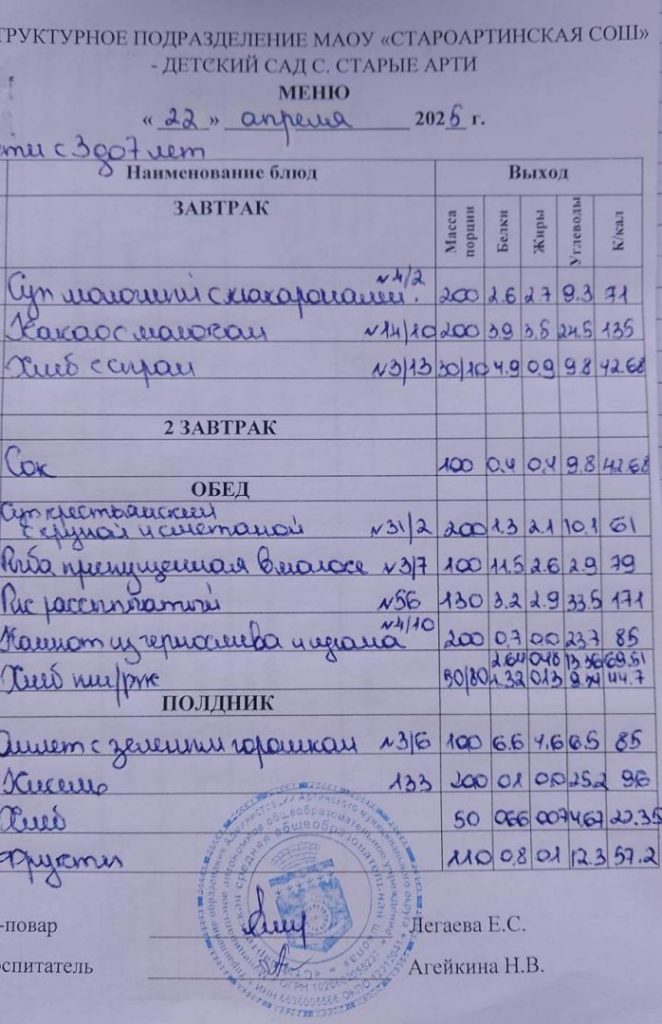 ТРУКТУРНОЕ ПОДРАЗДЕЛЕНИЕ МАОУ «СТАРОАРТИНСКАЯ СОШ»
- ДЕТСКИЙ САД С. СТАРЫЕ АРТИ
МЕНЮ
« 22 » апреля 2025 г.
ети с 3 до 7 лет
Наименование блюд Выход
ЗАВТРАК Масса порции Белки Жиры Углеводы К/кал
Суп молочный с макаронами. №4/2 200 2.6 2.7 9.3 71
Какао с молоком №14/10 200 3.9 3.5 24.5 135
Хлеб с сыром №3/13 30/10 4.9 0.9 9.8 42.68
2 ЗАВТРАК
Сок 100 0.4 0.4 9.8 42.68
ОБЕД
Суп крестьянский
с крупой и сметаной №31/2 200 1.3 2.1 10.1 61
Рыба припущенная в молоке №3/7 100 11.5 2.6 2.9 79
Рис рассыпчатый №56 130 3.2 2.9 33.5 171
Компот из чернослива и изюма №4/10 200 0.7 0.0 23.7 85
2.64 0.48 13.36 69.51
Хлеб пш/рж 50/80 1.32 013 44.7
ПОЛДНИК
Омлет с зеленым горошком №3/6 100 6.6 4.6 6.5 85
Кисель 133 200 01 0.0 25.2 96
Хлеб 50 066 007 4.67 22.35
Фрукты 110 0.8 0.1 12.3 57.2
-повар Легаева Е.С.
оспитатель Агейкина Н.В.